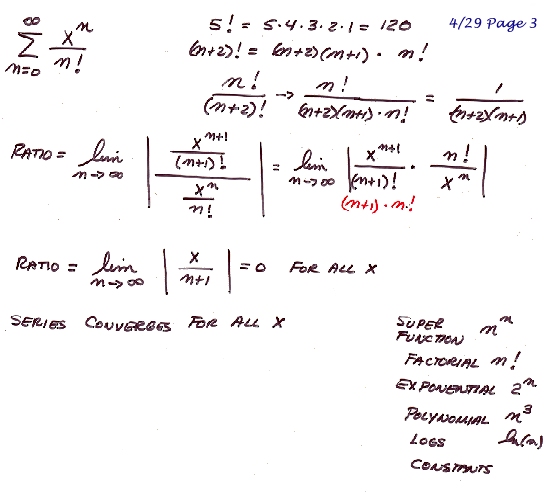 4/29 Page 3
∞
∑ xⁿ/n!
n=0
5! = 5·4·3·2·1 = 120
(n+2)! = (n+2)(n+1) · n!
n!/(n+2)! → n!/((n+2)(n+1)·n!) = 1/((n+2)(n+1))
RATIO = lim n→∞ | (xⁿ⁺¹/(n+1)!)/(xⁿ/n!) | = lim n→∞ | xⁿ⁺¹/(n+1)! · n!/xⁿ |
(n+1)·n!
RATIO = lim n→∞ | x/(n+1) | = 0 FOR ALL X
SERIES CONVERGES FOR ALL X
SUPER
FUNCTION nⁿ
FACTORIAL n!
EXPONENTIAL 2ⁿ
POLYNOMIAL n³
LOGS ln(n)
CONSTANTS